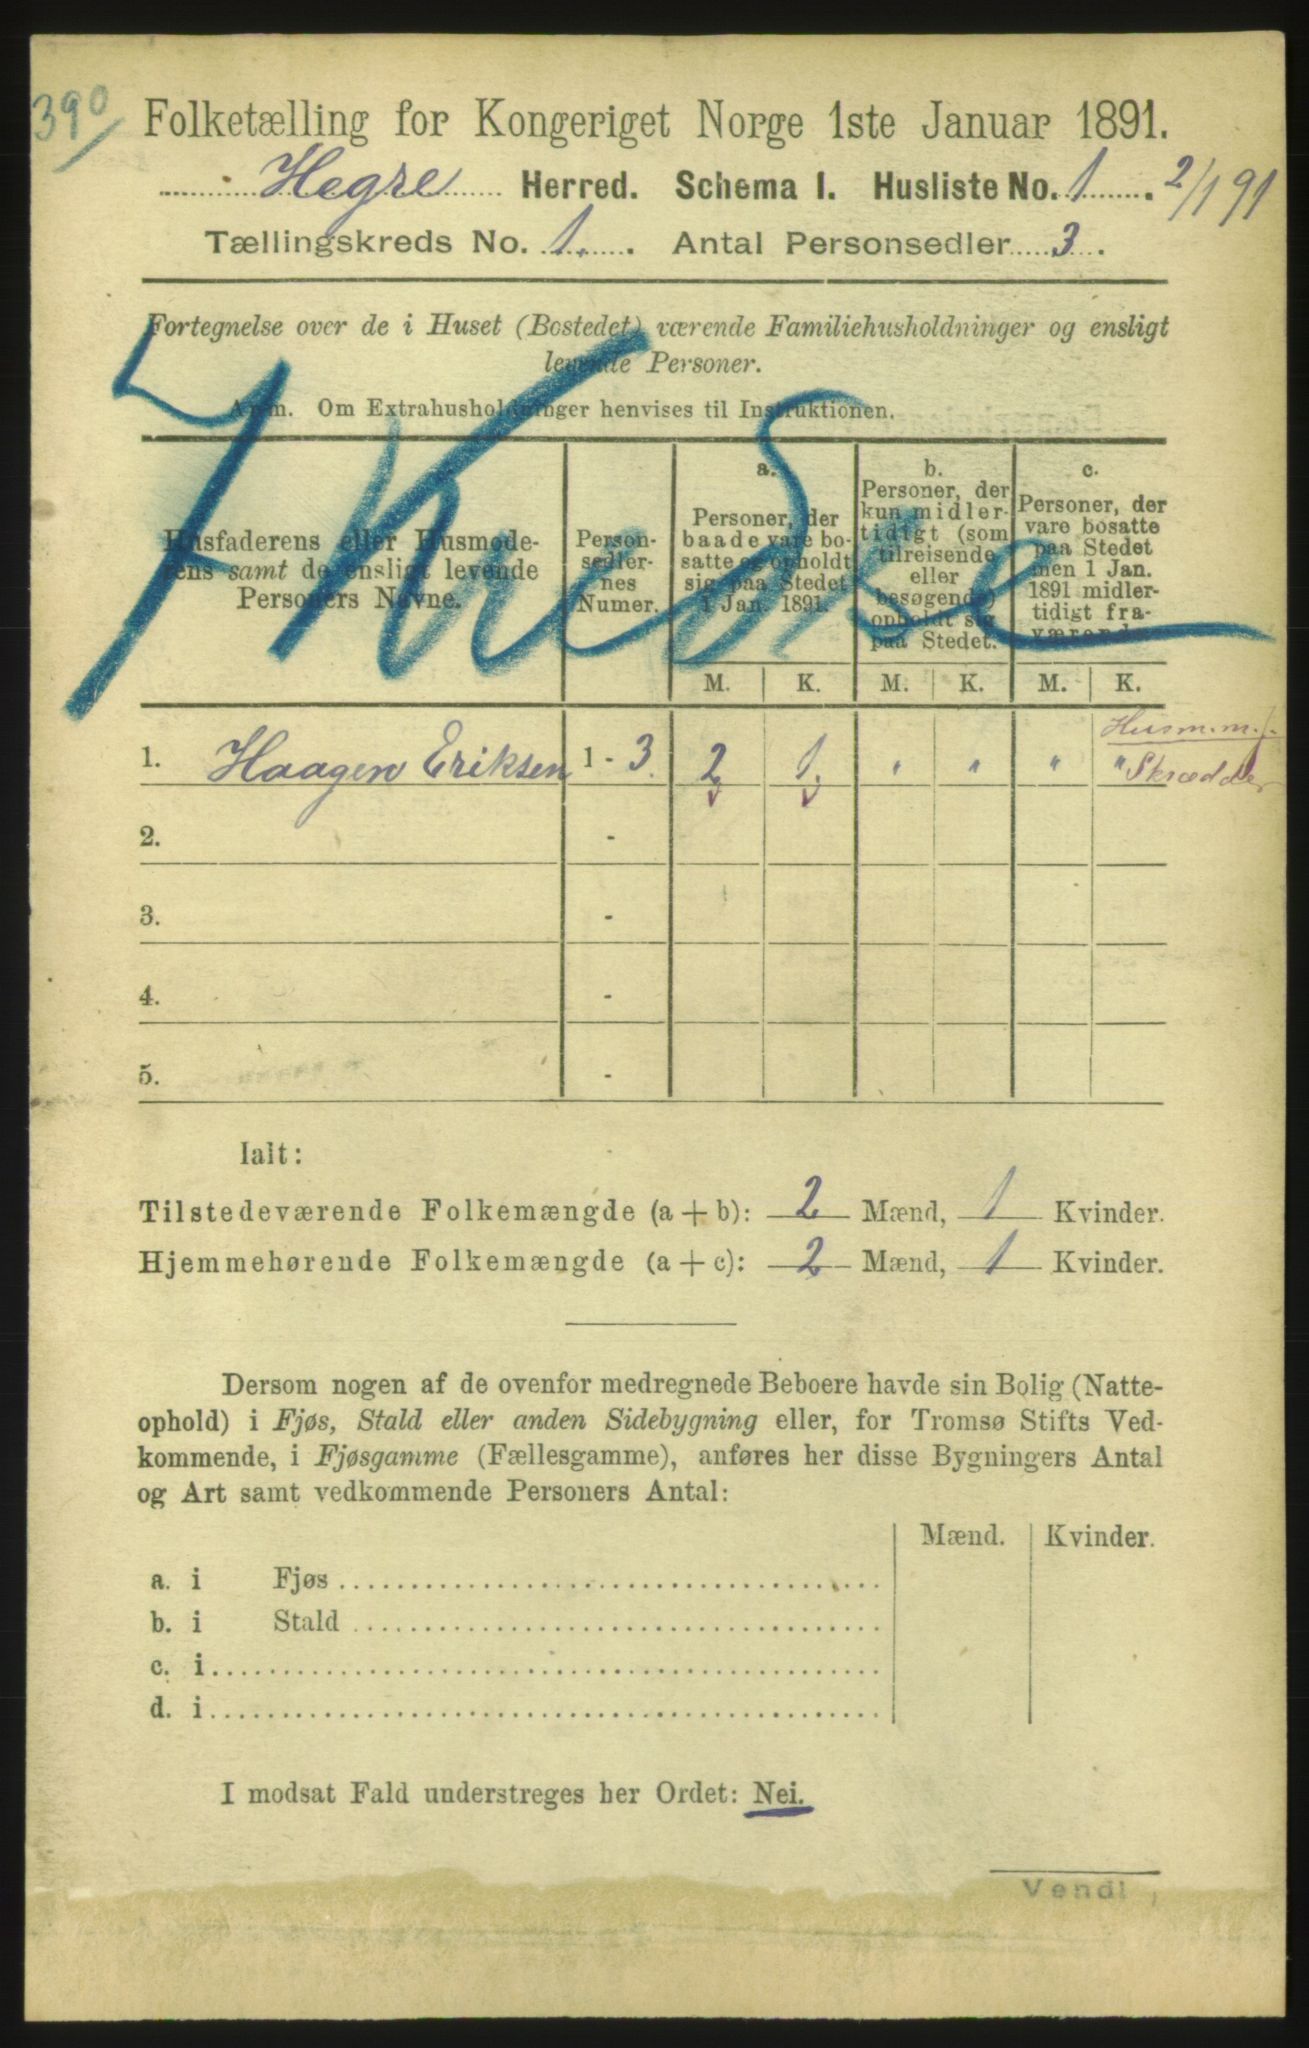 390
Folketælling for Kongeriget Norge 1ste Januar 1891.
Hegre Herred. Schema I. Husliste No. 1. 2/1 91
Tællingskreds No. 1. Antal Personsedler 3.
Fortegnelse over de i Huset (Bostedet) værende Familiehusholdninger og ensligt
levende Personer.
Anm. Om Extrahusholdninger henvises til Instruktionen.
Husfaderens eller Husmode-
rens samt de ensligt levende
Personers Navne.
Person-
sedler-
nes
Numer.
a.
Personer, der
baade vare bo-
satte og opholdt
sig paa Stedet
1 Jan. 1891.
b.
Personer, der
kun midler-
tidigt (som
tilreisende
eller
besøgende)
opholdt sig
paa Stedet.
c.
Personer, der
vare bosatte
paa Stedet
men 1 Jan.
1891 midler-
tidigt fra-
værende.
M. K. M. K. M. K.
Husm. m. j.
1. Haagen Eriksen 1 - 3. 2 1. " " " " Skrædder
2. -
3. -
4. -
5. -
Ialt:
Tilstedeværende Folkemængde (a + b): 2 Mænd, 1 Kvinder.
Hjemmehørende Folkemængde (a + c): 2 Mænd, 1 Kvinder.
Dersom nogen af de ovenfor medregnede Beboere havde sin Bolig (Natte-
ophold) i Fjøs, Stald eller anden Sidebygning eller, for Tromsø Stifts Ved-
kommende, i Fjøsgamme (Fællesgamme), anføres her disse Bygningers Antal
og Art samt vedkommende Personers Antal:
Mænd. Kvinder.
a. i Fjøs
b. i Stald
c. i
d. i
I modsat Fald understreges her Ordet: Nei.
Vend!